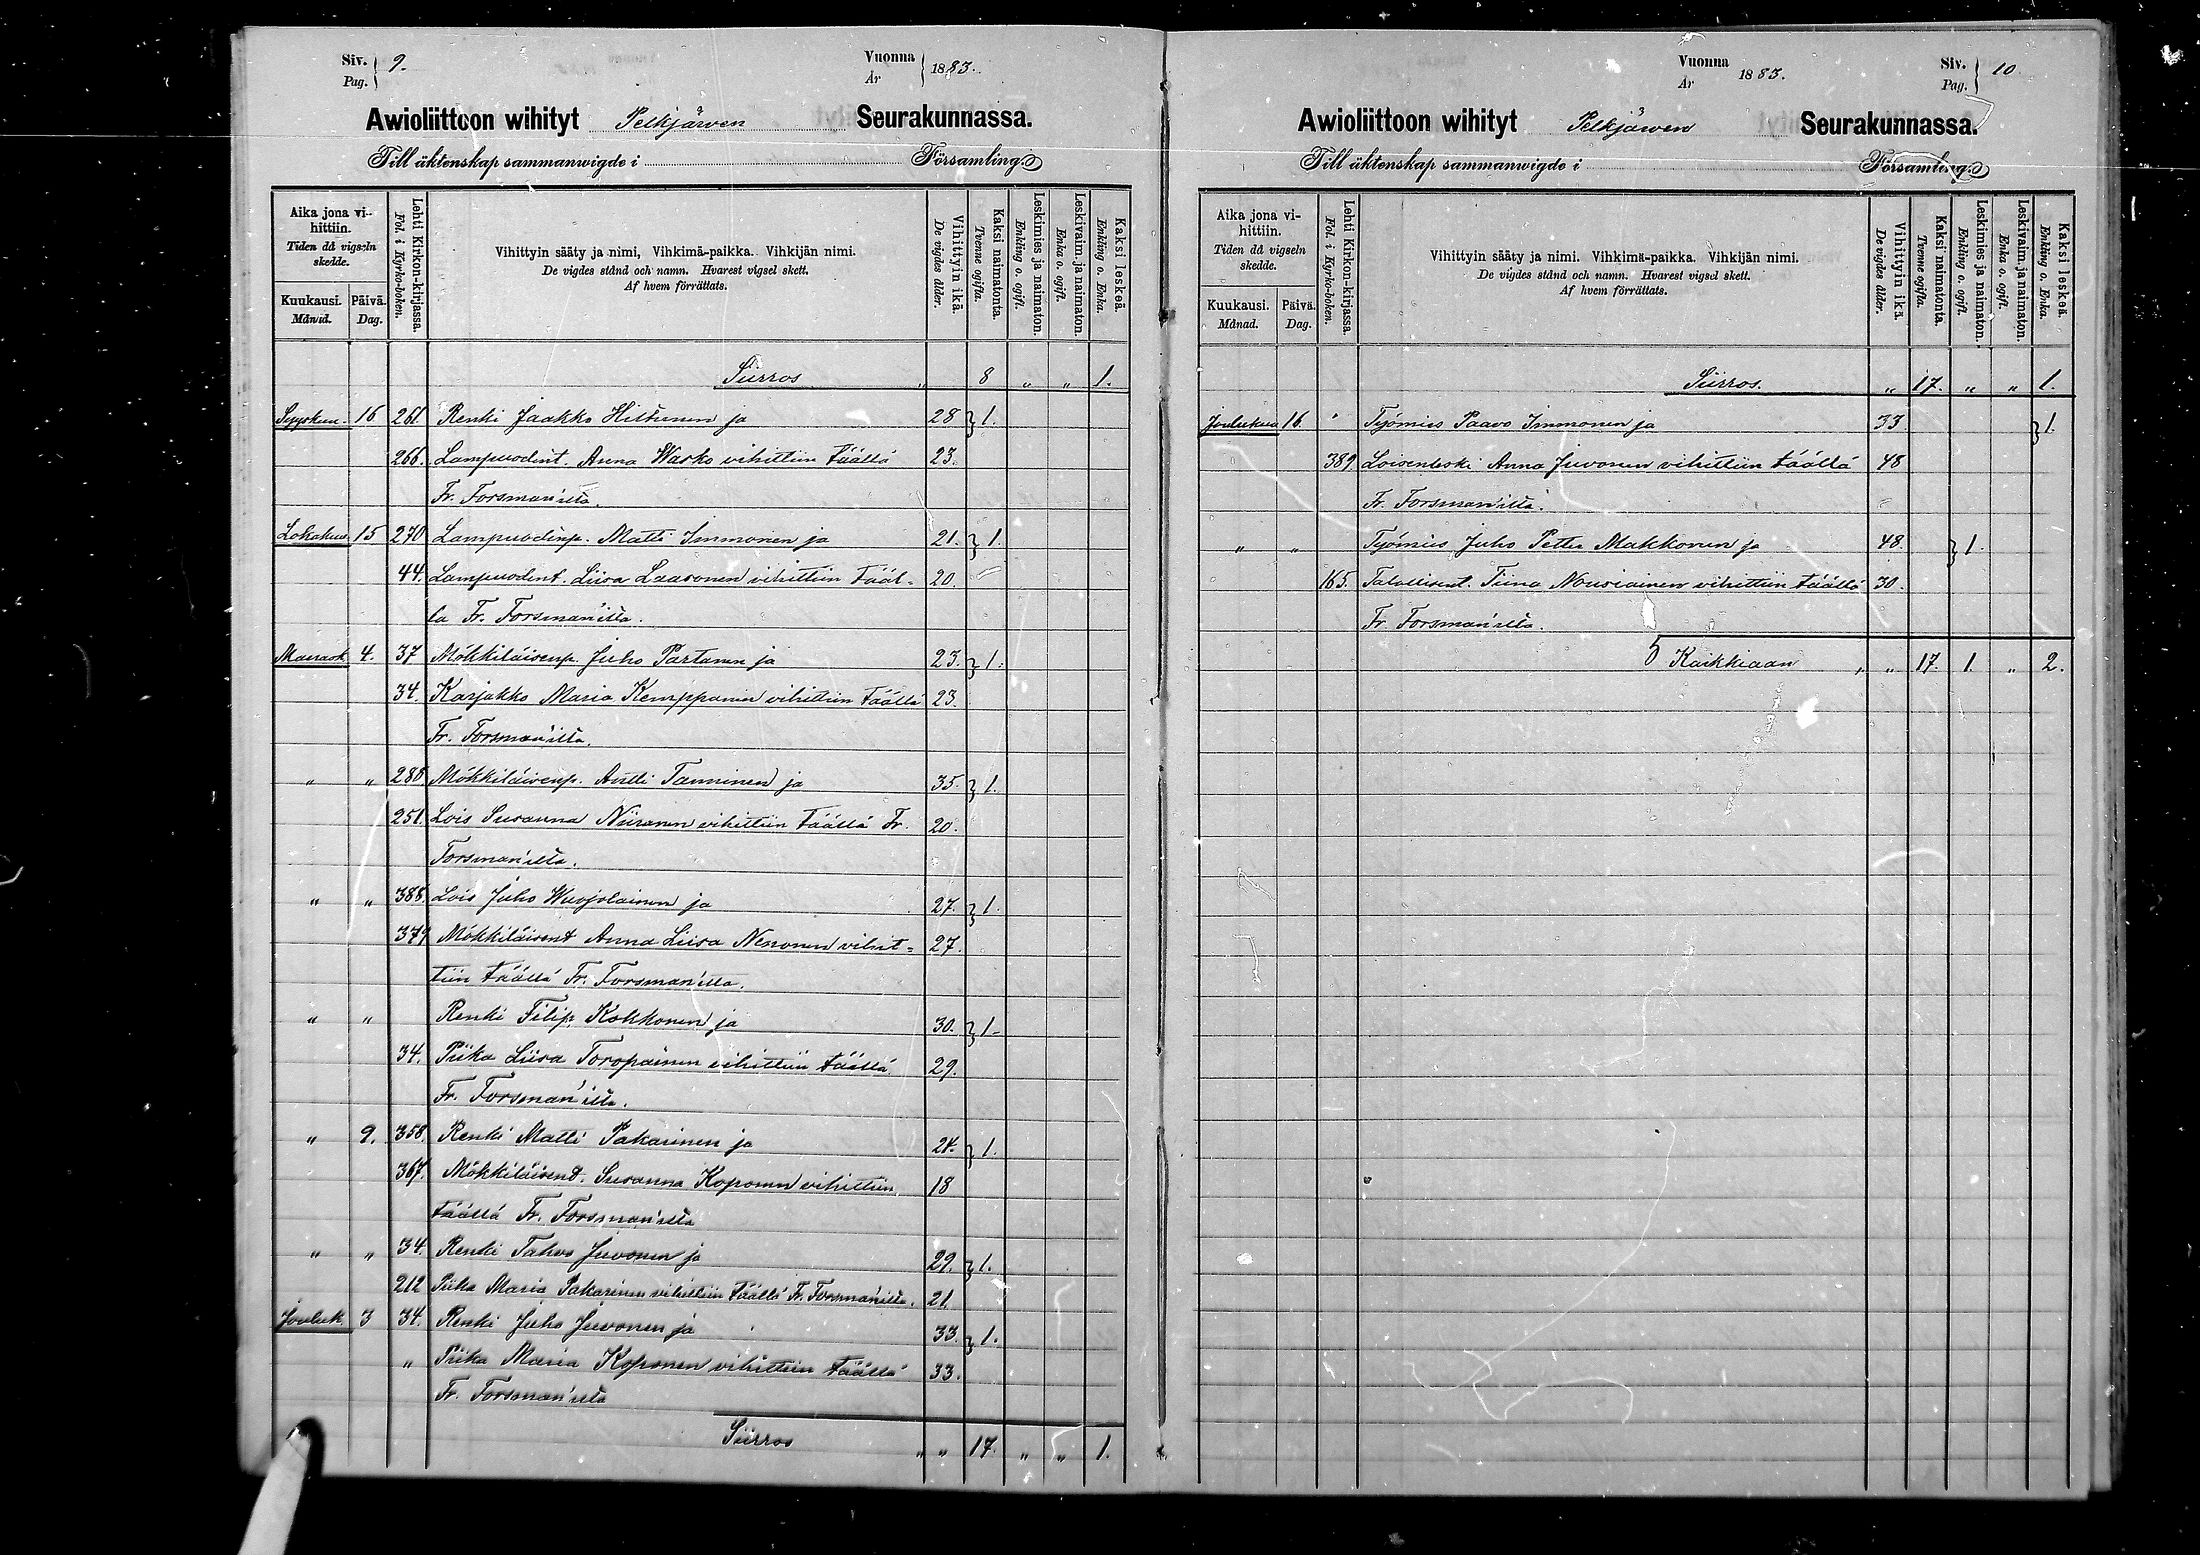 Siv. Pag. 9.
Vuonna År 1883.
Awioliittoon wihityt Pelkjärwen Seurakunnassa.
Till äktenskap sammanwigde i Församling.
Aika jona vihittiin. Tiden då vigseln skedde.
Kuukausi. Månad.
Päivä. Dag.
Lehti Kirkon-kirjassa. Fol. i Kyrko-boken.
Vihittyin sääty ja nimi, Vihkimä-paikka. Vihkijän nimi.
De vigdes stånd och namn. Hvarest vigsel skett.
Af hvem förrättats.
Vihittyin ikä. De vigdes ålder.
Kaksi naimatonta. Tvenne ogifta.
Leskimies ja naimaton. Enkling o. ogift.
Leskivaim. ja naimaton. Enka o. ogift.
Kaksi leskeä. Enkling o. Enka.
Siirros „ 8 „ „ 1.
Syyskuu. 16 261. Renki Jaakko Hiltunen ja 28 } 1.
266. Lampuodint. Anna Wasko vihittiin täällä 23.
Fr. Forsman'ilta.
Lokakuu 15 270 Lampuodinp. Matti Immonen ja 21. } 1.
44. Lampuodint. Liisa Laasonen vihittiin tääl= 20.
lä Fr. Forsman'ilta.
Marrask. 4. 37 Mökkiläisenp. Juho Partanen ja 23. } 1.
34. Karjakko Maria Kemppanen vihittiin täällä 23.
Fr. Forsman'ilta.
„ „ 285 Mökkiläisenp. Antti Tanninen ja 35. } 1.
251. Lois Susanna Niiranen vihittiin täällä Fr. 20.
Forsman'ilta.
„ „ 388. Lois Juho Wuojolainen ja 27. } 1.
379 Mökkiläisent Anna Liisa Nenonen vihit= 27.
tiin täällä Fr. Forsman'ilta.
„ „ Renki Filip Kokkonen ja 30. } 1.
34. Piika Liisa Toropainen vihittiin täällä 29.
Fr. Forsman'ilta.
„ 9. 358. Renki Matti Pakarinen ja 24. } 1.
367. Mökkiläisent. Susanna Koponen vihittiin 18
täällä Fr. Forsman'ilta
„ „ 34. Renki Tahvo Juvonen ja 29. } 1.
212 Piika Maria Pakarinen vihittiin täällä Fr. Forsman'ilta. 21.
Jouluk. 3 34. Renki Juho Juvonen ja 33. } 1.
„ Piika Maria Koponen vihittiin täällä 33.
Fr. Forsman'ilta
Siirros „ „ 17. „ „ 1.
Vuonna År 1883.
Siv. Pag. 10.
Awioliittoon wihityt Pelkjärwen Seurakunnassa.
Till äktenskap sammanwigde i Församling.
Aika jona vihittiin. Tiden då vigseln skedde.
Kuukausi. Månad.
Päivä. Dag.
Lehti Kirkon-kirjassa. Fol. i Kyrko-boken.
Vihittyin sääty ja nimi. Vihkimä-paikka. Vihkijän nimi.
De vigdes stånd och namn. Hvarest vigsel skett.
Af hvem förrättats.
Vihittyin ikä. De vigdes ålder.
Kaksi naimatonta. Tvenne ogifta.
Leskimies ja naimaton. Enkling o. ogift.
Leskivaim. ja naimaton. Enka o. ogift.
Kaksi leskeä. Enkling o. Enka.
Siirros. „ 17. „ „ 1.
Joulukuu 16. „ Työmies Paavo Immonen ja 33. } 1.
389 Loisenleski Anna Juvonen vihittiin täällä 48
Fr. Forsman'ilta.
„ „ Työmies Juho Petter Makkonen ja 48. } 1.
165. Talollisent. Tiina Nousiainen vihittiin täällä 30.
Fr. Forsman'ilta.
Kaikkiaan „ „ 17. 1. „ 2.